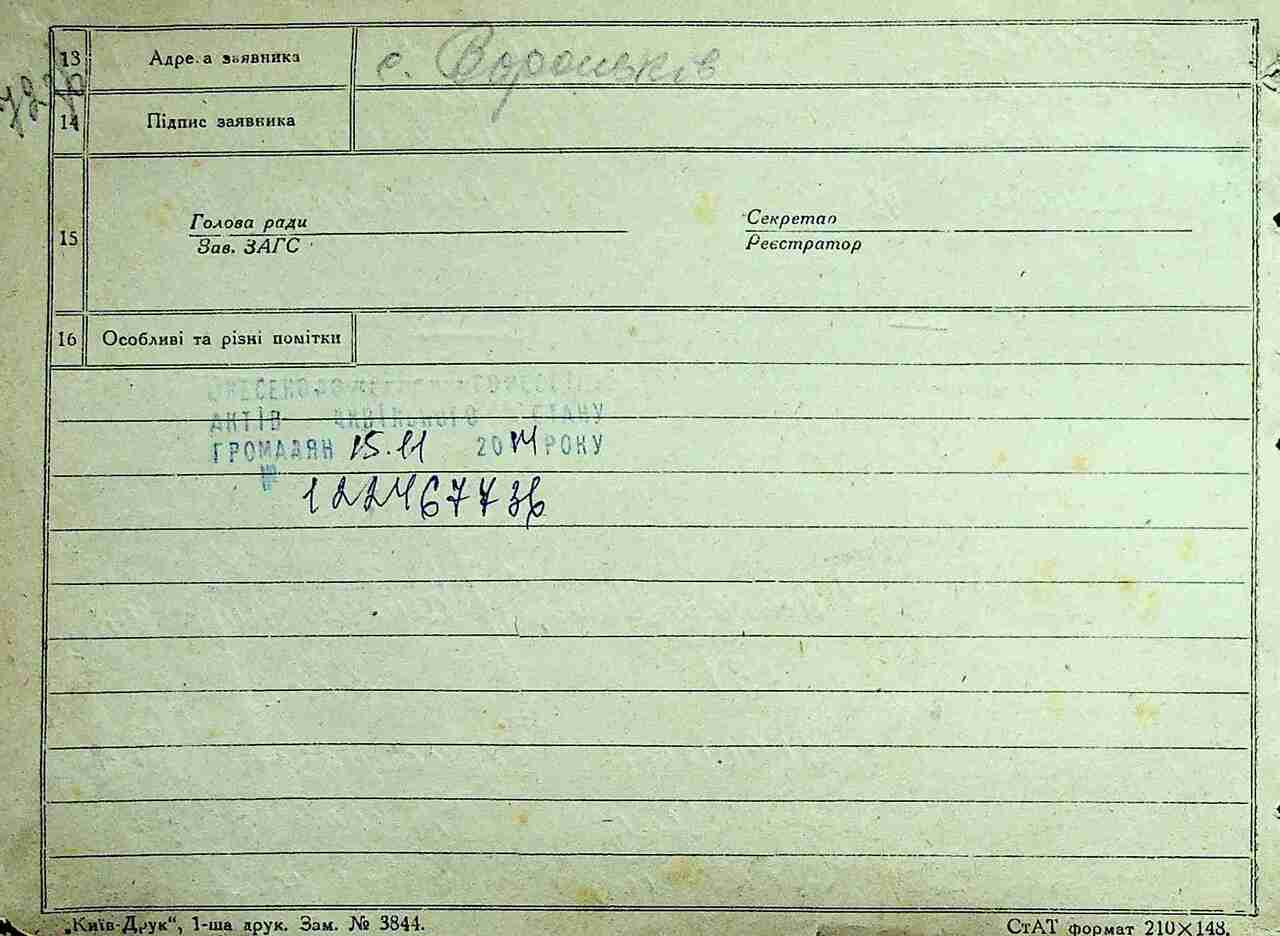 13 Адреса заявника с. Вороньків
14 Підпис заявника
15
Голова ради
Зав. ЗАГС
Секретар
Реєстратор
16 Особливі та різні помітки
ВНЕСЕНО ДО
АКТІВ ЦИВІЛЬНОГО СТАНУ
ГРОМАДЯН 15.11 2014 РОКУ
№
122467736
„Київ-Друк“, 1-ша друк. Зам. № 3844.
СтАТ формат 210×148.